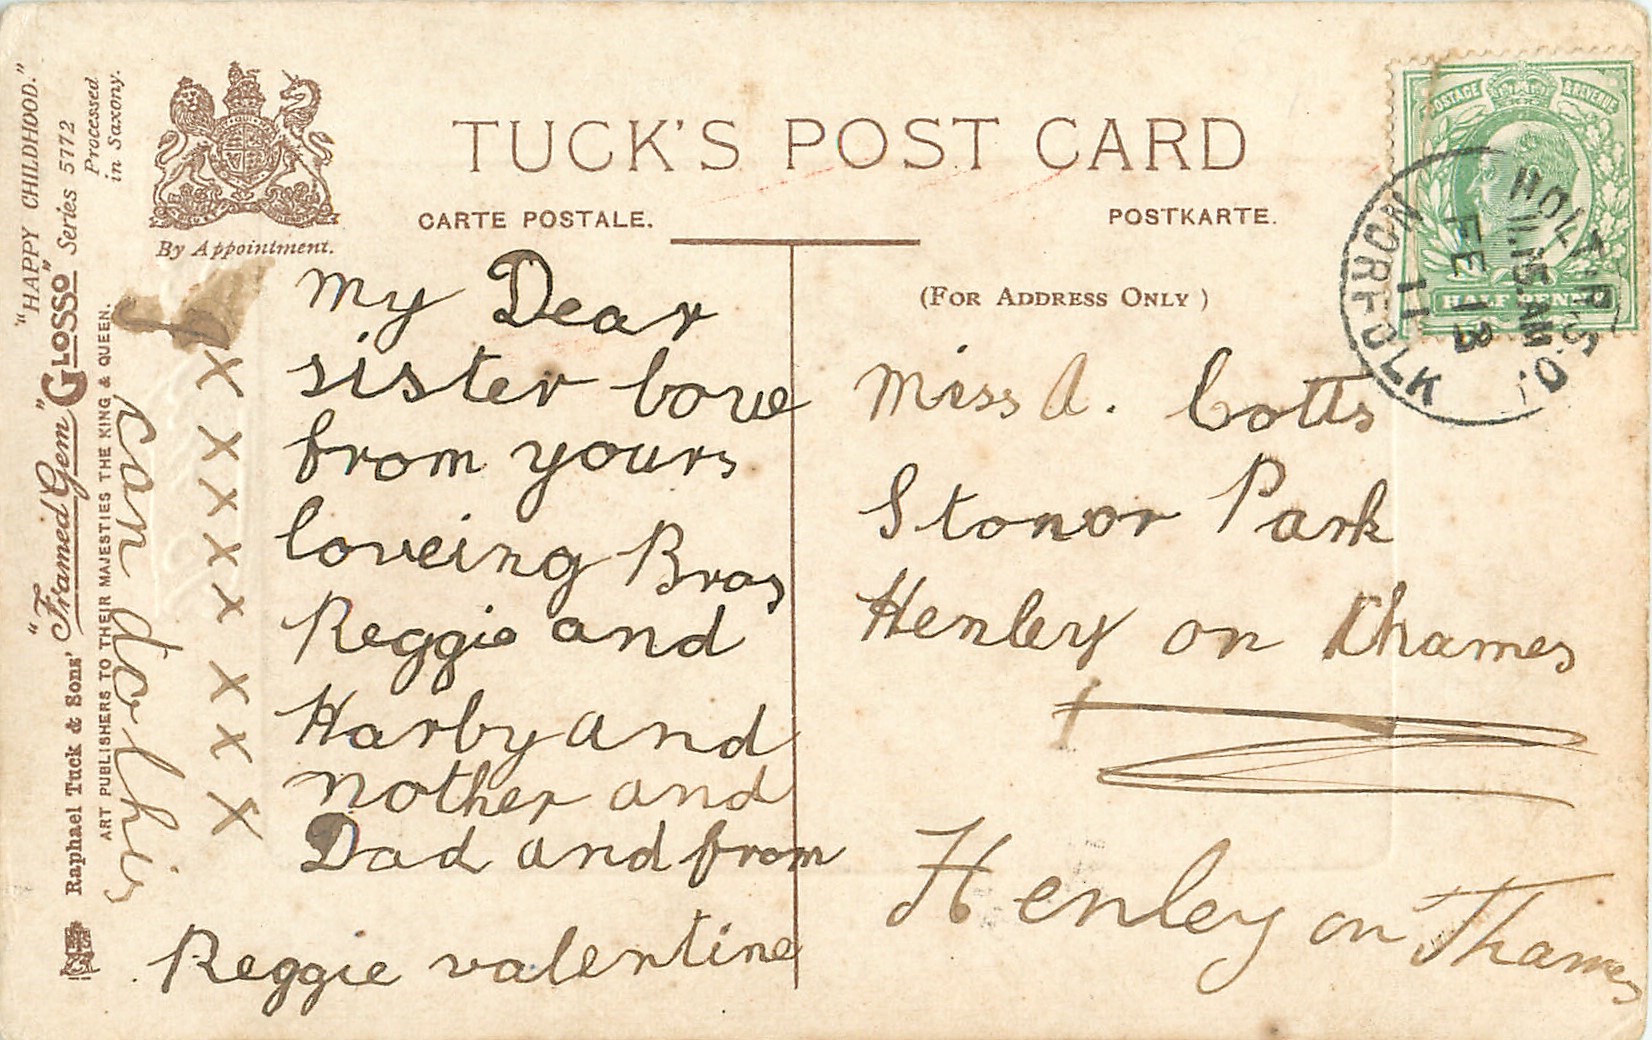 TUCK'S POST CARD
CARTE POSTALE.
POSTKARTE.
(FOR ADDRESS ONLY)
By Appointment.
"HAPPY CHILDHOOD."
"Framed Gem" "GLOSSO" Series 5772
Processed
in Saxony.
Raphael Tuck & Sons'
ART PUBLISHERS TO THEIR MAJESTIES THE KING & QUEEN.
My Dear
sister love
from yours
loveing Bros
Reggie and
Harby and
mother and
Dad and from
Reggie valentine
x x x x x x x
Miss A. Cotts
Stonor Park
Henley on Thames
Henley on Thames
POSTAGE & REVENUE
HALF PENNY
11.15 AM
FE 13
11
NORFOLK